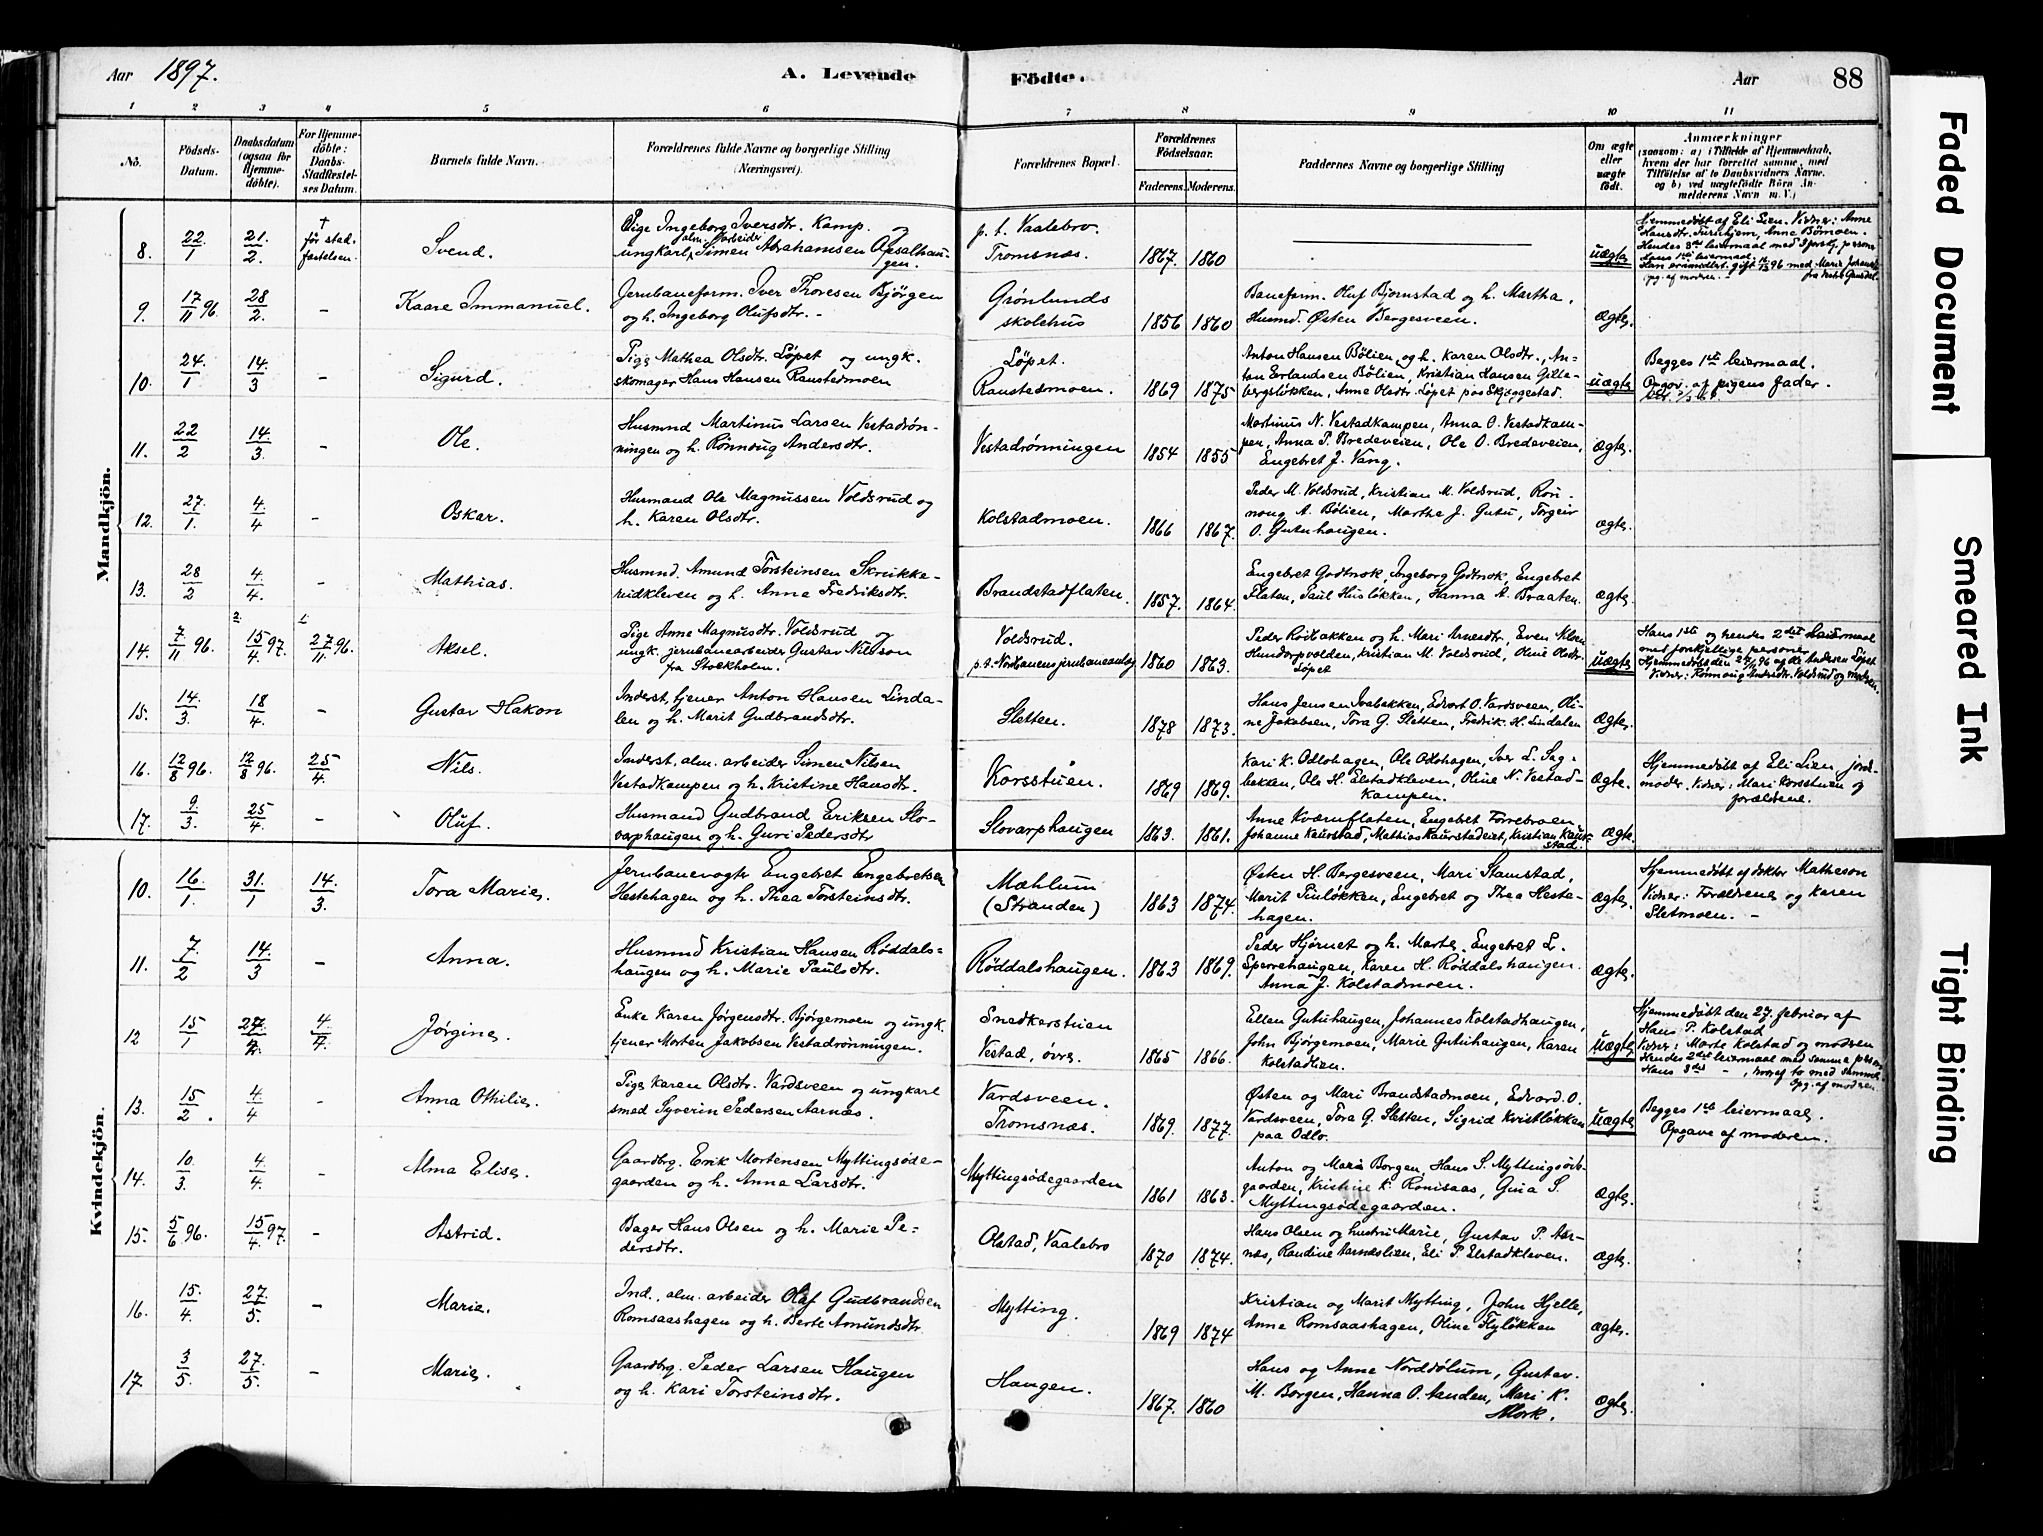 Aar 1897.
A. Levende
Födte.
Aar
88
1 2 3 4 5 6 7 8 9 10 11
No.
Födsels-
Datum.
Daabsdatum
(ogsaa for
Hjemme-
döbte).
For Hjemme-
döbte:
Daabs-
Stadfæstel-
ses Datum.
Barnets fulde Navn.
Forældrenes fulde Navne og borgerlige Stilling
(Næringsvei).
Forældrenes Bopæl.
Forældrenes
Födselsaar.
Faderens.
Moderens.
Faddernes Navne og borgerlige Stilling
Om ægte
eller
uægte
födt.
Anmærkninger
(saasom: a) i Tilfælde af Hjemmedaab,
hvem der har forrettet samme, med
Tilföielse af to Daabsvidners Navne,
og b) ved uægtefödte Börn An-
melderens Navn m. V.)
Mandkjön.
8. 22/1 21./2. † før stad-
fæstelsen.
Svend.
Pige Ingeborg Iversdtr. Kamp. og
ungkarl, alm. arbeider Simen Abrahamsen Opsalhau-
gen.
p. t. Vaalebro.
Tromsnæs.
1867. 1860
uægte
Hjemmedøbt af Eli Lien. Vidner: Anne
Hansdtr. Furuhjem, Anne Bømoen.
9. 17/11 96. 28/2. -
Kaare Immanuel.
Jernbaneform. Iver Thoresen Bjørgen
og h. Ingeborg Olufsdtr. -
Grønlunds
skolehus
1856 1860
Baneform. Oluf Bjørnstad og h. Martha,
Husmd. Østen Bergesveen.
ægte.
10. 24./1 14./3 -
Sigurd.
Pige Mathea Olsdtr. Løpet og ungk.
skomager Hans Hansen Ranstedmoen
Løpet.
Ranstadmoen.
1869 1875
Anton Hansen Bølien, og h. Karen Olsdtr., An-
ton Erlandsen Bølien, Kristian Hansen Gilte-
bergsløkken, Anne Olsdtr. Løpet paa Skjæggestad.
uægte
Begges 1ste leiermaal.
Opgav. af pigens fader.
11. 22/2 14./3. -
Ole.
Husmnd Martinus Larsen Vestadrøn-
ningen og h. Rønnaug Andersdtr.
Vestadrønningen
1854 1855
Martinus N. Vestadkampen, Anna O. Vestadkam-
pen, Anna P. Bredeveien, Ole O. Bredeveien,
Engebret J. Vang.
ægte.
12. 27./1. 4./4 -
Oskar.
Husmand Ole Magnussen Voldsrud og
h. Karen Olsdtr.
Kolstadmoen.
1866 1867.
Peder M. Voldsrud, Kristian M. Voldsrud, Røn-
naug A. Bølien, Marthe J. Gutu, Torgeir
O. Gutuhaugen.
ægte.
13. 28/2 4./4. -
Mathias.
Husmnd. Amund Torsteinsen Skrukke-
rudkleven og h. Anne Fredriksdtr.
Brandstadflaten.
1857. 1864.
Engebret Godtnok, Ingeborg Godtnok, Engebret
Flaten, Paul Husløkken, Hanna A. Braaten.
ægte.
2. 1.
14. 7./11 96. 15/4. 97. 27/11. 96.
Aksel.
Pige Anne Magnusdtr. Voldsrud og
ungk. jernbanearbeider Gustav Nilsson
fra Stockholm.
Voldsrud.
1860 1863.
Hundorpvolden, Kristian M. Voldsrud, Oline Olsdtr.
Løpet
uægte
Hans 1ste og hendes 2det leiermaal
med forskjellige personer.
15. 14./3. 18/4. -
Gustav Hakon
Inderst, tjener Anton Hansen Linda-
len og h. Marit Gudbrandsdtr.
Sletten.
1878 1873.
Hans Jensen Ivabakken, Edvart O. Vardsveen, Oli-
ne Jakobsen, Tora G. Sletten, Fredrik H. Lindalen
ægte.
16. 12/8 96. 12/8 96. 25/4.
Nils.
Inderst, alm. arbeider Simen Nilsen
Vestadkampen og h. Kristine Hansdtr.
Korsstuen.
1869 1869.
Kari K. Odlohagen, Ole Odlohagen, Iver L. Sag-
bakken, Ole H. Elstadkleven, Oline N. Vestad-
kampen.
ægte.
Hjemmedøbt af Eli Lien, jord-
moder. Vidner: Mari Korsstuen og
forældrene.
17. 9./3. 25/4. -
Oluf.
Husmand Gudbrand Eriksen Slo-
varphaugen og h. Guri Pedersdtr
Slovarphaugen
1863. 1861.
Anne Kværnflaten, Engebret Forrebroen,
Johanne Kaurstad, Mathias Kaurstadeiet, Kristian Kaur-
stad.
ægte.
Kvindekjön.
10. 16./1. 31./1 14./3.
Tora Marie.
Jernbanevogter Engebret Engebretsen
Hestehagen og h. Thea Torsteinsdtr.
Mæhlum
(Stranden)
1863 1874.
Østen H. Bergesveen, Mari Stamstad,
Marit Tinløkken, Engebret og Thea Heste-
hagen.
ægte.
Hjemmedøbt af doktor Matheson
Vidner: Forældrene og Karen
Sletmoen. -
11. 7./2 14./3 -
Anna.
Husmnd Kristian Hansen Røddals-
haugen og h. Marie Paulsdtr.
Røddalshaugen.
1863 1869.
Peder Hjørnet og h. Marte. Engebret L.
Sperrehaugen, Karen H. Røddalshaugen.
Anna J. Kolstadmoen.
ægte.
12 15/1 4./4
Jørgine.
Enke Karen Jørgensdtr. Bjørgemoen og ungk.
tjener Morten Jakobsen Vestadrønningen.
Snedkerstuen
Vestad, øvre.
1865 1866.
Ellen Gutuhaugen, Johannes Kolstadhaugen,
John Bjørgemoen, Marie Gutuhaugen, Karen
Kolstadlien.
uægte
Hjemmedøbt den 27. februar af
Hans P. Kolstad
Vidner: Marte Kolstad og modren
Hendes 2det leiermaal med samme person
Opg. af modren.
13. 15/2. 4./4 -
Anna Othilie.
Pige Karen Olsdtr. Vardsveen og ungkarl
smed Syverin Pedersen Aarnæs.
Vardsveen.
Tromsnæs.
1869. 1877.
Østen og Mari Brandstadmoen, Edvard O.
Vardsveen, Tora G. Sletten, Sigrid Kvistløkken
paa Odlo.
uægte
Begges 1ste leiermaal.
Opgave af moderen.
14. 10./3. 4./4. -
Alma Elise.
Gaardbrg. Erik Mortensen Myttingsøde-
gaarden og h. Anna Larsdtr.
Myttingsødegaarden
1861 1863.
Anton og Maria Borgen, Hans S. Myttingsøde-
gaarden, Kristine K. Romsaas, Gina S.
Myttingsødegaarden.
ægte.
15. 5/6 96. 15/4. 97. -
Astrid.
Bager Hans Olsen og h. Marie Pe-
dersdtr.
Olstad, Vaalebro
1870 1874.
Hans Olsen og hustru Marie, Gustav P. Aar-
næs, Randine Aarnæslien, Eli P. Elstadkleven.
ægte.
16. 15./4. 27./5. -
Marie.
Ind., alm. arbeider Olaf Gudbrandsen
Romsaashagen og h. Berte Amundsdtr.
Mytting.
1869 1874
Kristian og Marit Mytting, John Hjelle,
Anne Romsaashagen, Oline Flyløkken
ægte.
17. 3/5. 27./5. -
Marie.
Gaardbrg. Peder Larsen Haugen
og h. Kari Torsteinsdtr.
Haugen.
1867. 1860
Hans og Anne Norddølum, Gustav.
M. Borgen, Hanna O. Aanden, Mari K.
Mork.
ægte.
Faded Document
Smeared Ink
Tight Binding